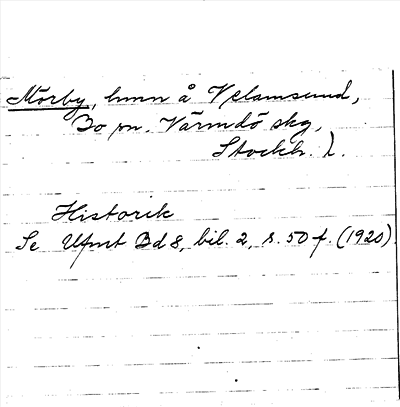 Mörby, hmn å Velamsund,
Bo sn. Värmdö skg,
Stockh. L.
Historik
Se Ufmt Bd 8, bil. 2, s. 50 f. (1920).